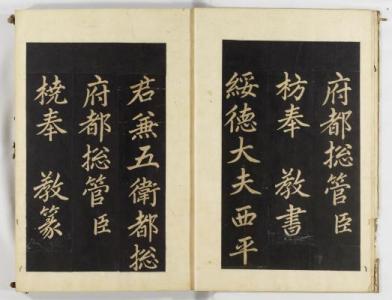 府都摠管臣
枋奉 教書
綏德大夫西平
君兼五衛都摠
府都摠管臣
橈奉 教篆